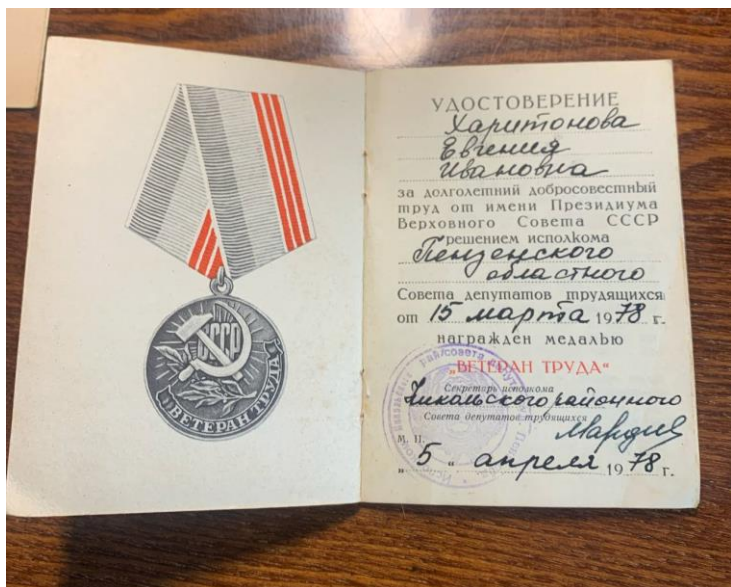 СССР
ВЕТЕРАН ТРУДА
УДОСТОВЕРЕНИЕ
Харитонова
Евгения
Ивановна
за долголетний добросовестный
труд от имени Президиума
Верховного Совета СССР
решением исполкома
Пензенского
областного
Совета депутатов трудящихся
от 15 марта 1978 г.
награжден медалью
„ВЕТЕРАН ТРУДА“
Секретарь исполкома
Никольского районного
Совета депутатов трудящихся
М. П.
„5“ апреля 1978 г.